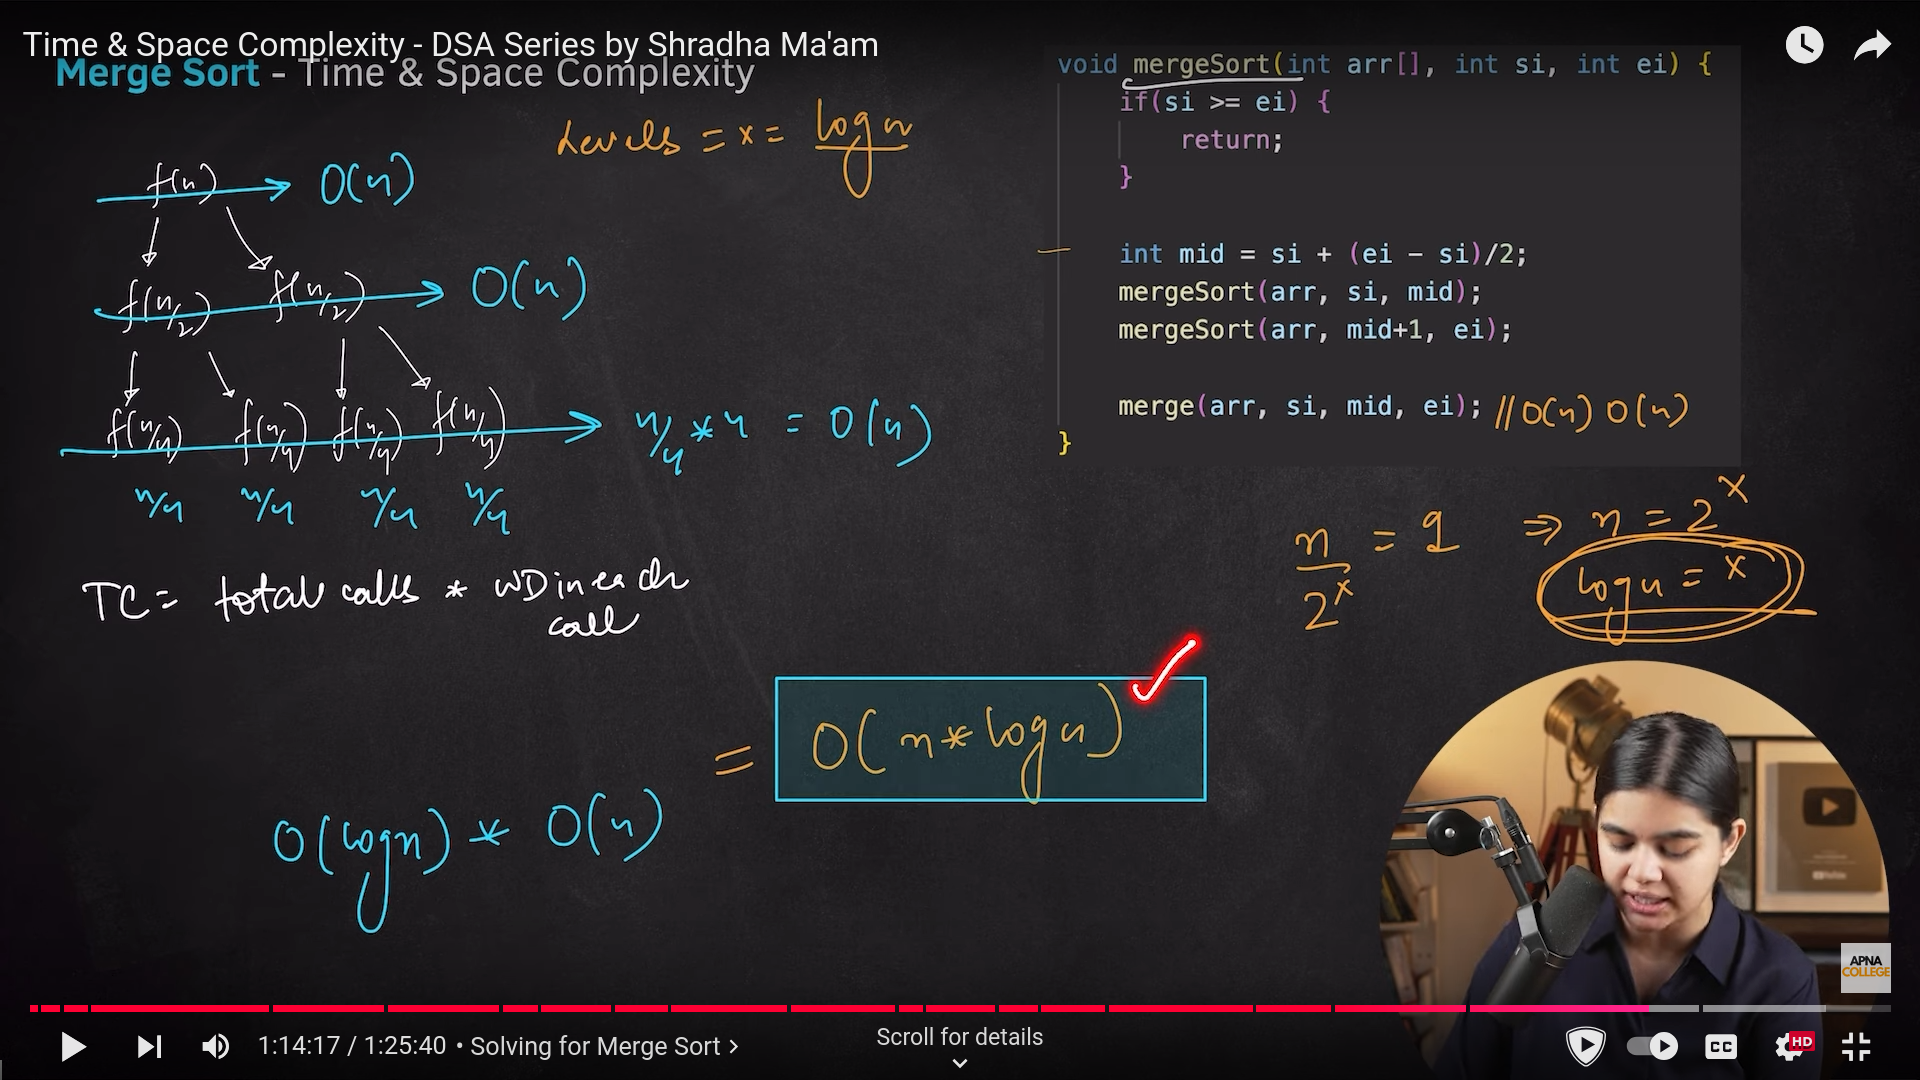 Time & Space Complexity - DSA Series by Shradha Ma'am
Merge Sort - Time & Space Complexity
Levels = x = log n
f(n) O(n)
f(n/2) f(n/2) O(n)
f(n/4) f(n/4) f(n/4) f(n/4) n/4 * 4 = O(n)
n/4 n/4 n/4 n/4
TC = total calls * WD in each
call
= O(n * log n)
O(log n) * O(n)
void mergeSort(int arr[], int si, int ei) {
if(si >= ei) {
return;
}
int mid = si + (ei - si)/2;
mergeSort(arr, si, mid);
mergeSort(arr, mid+1, ei);
merge(arr, si, mid, ei); //O(n) O(n)
}
n/2^x = 1 ⇒ n = 2^x
log n = x
APNA
COLLEGE
1:14:17 / 1:25:40 • Solving for Merge Sort >
Scroll for details
CC
HD